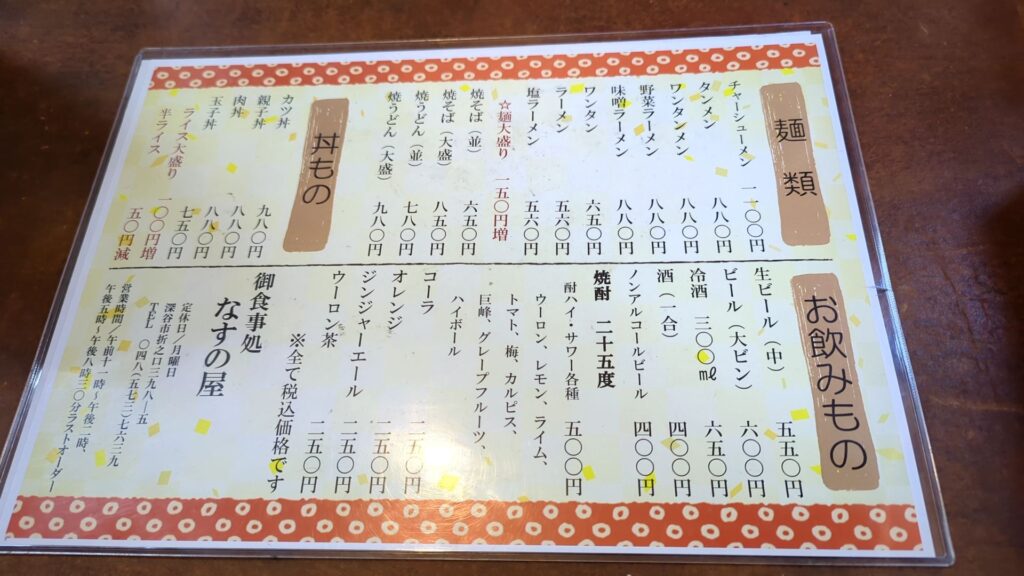 麺類
チャーシューメン 一一〇〇円
タンメン 八八〇円
ワンタンメン 八八〇円
野菜ラーメン 八八〇円
味噌ラーメン 八八〇円
ワンタン 六五〇円
ラーメン 五六〇円
塩ラーメン 五六〇円
☆麺大盛り 一五〇円増
焼そば(並) 六五〇円
焼そば(大盛) 八五〇円
焼うどん(並) 七八〇円
焼うどん(大盛) 九八〇円
丼もの
カツ丼 九八〇円
親子丼 八八〇円
肉丼 八八〇円
玉子丼 七五〇円
ライス大盛り 一〇〇円増
半ライス 五〇円減
お飲みもの
生ビール(中) 五五〇円
ビール(大ビン) 六〇〇円
冷酒 三〇〇㎖ 六五〇円
酒(一合) 四〇〇円
ノンアルコールビール 四〇〇円
焼酎 二十五度
酎ハイ・サワー各種 五〇〇円
ウーロン、レモン、ライム、
トマト、梅、カルピス、
巨峰、グレープフルーツ、
ハイボール
コーラ 二五〇円
オレンジ 二五〇円
ジンジャーエール 二五〇円
ウーロン茶 二五〇円
※全て税込価格です
御食事処
なすの屋
定休日/月曜日
深谷市折之口三九八―五
TEL 〇四八(五七三)七六三九
営業時間/午前十一時~午後二時、
午後五時~午後八時三〇分ラストオーダー